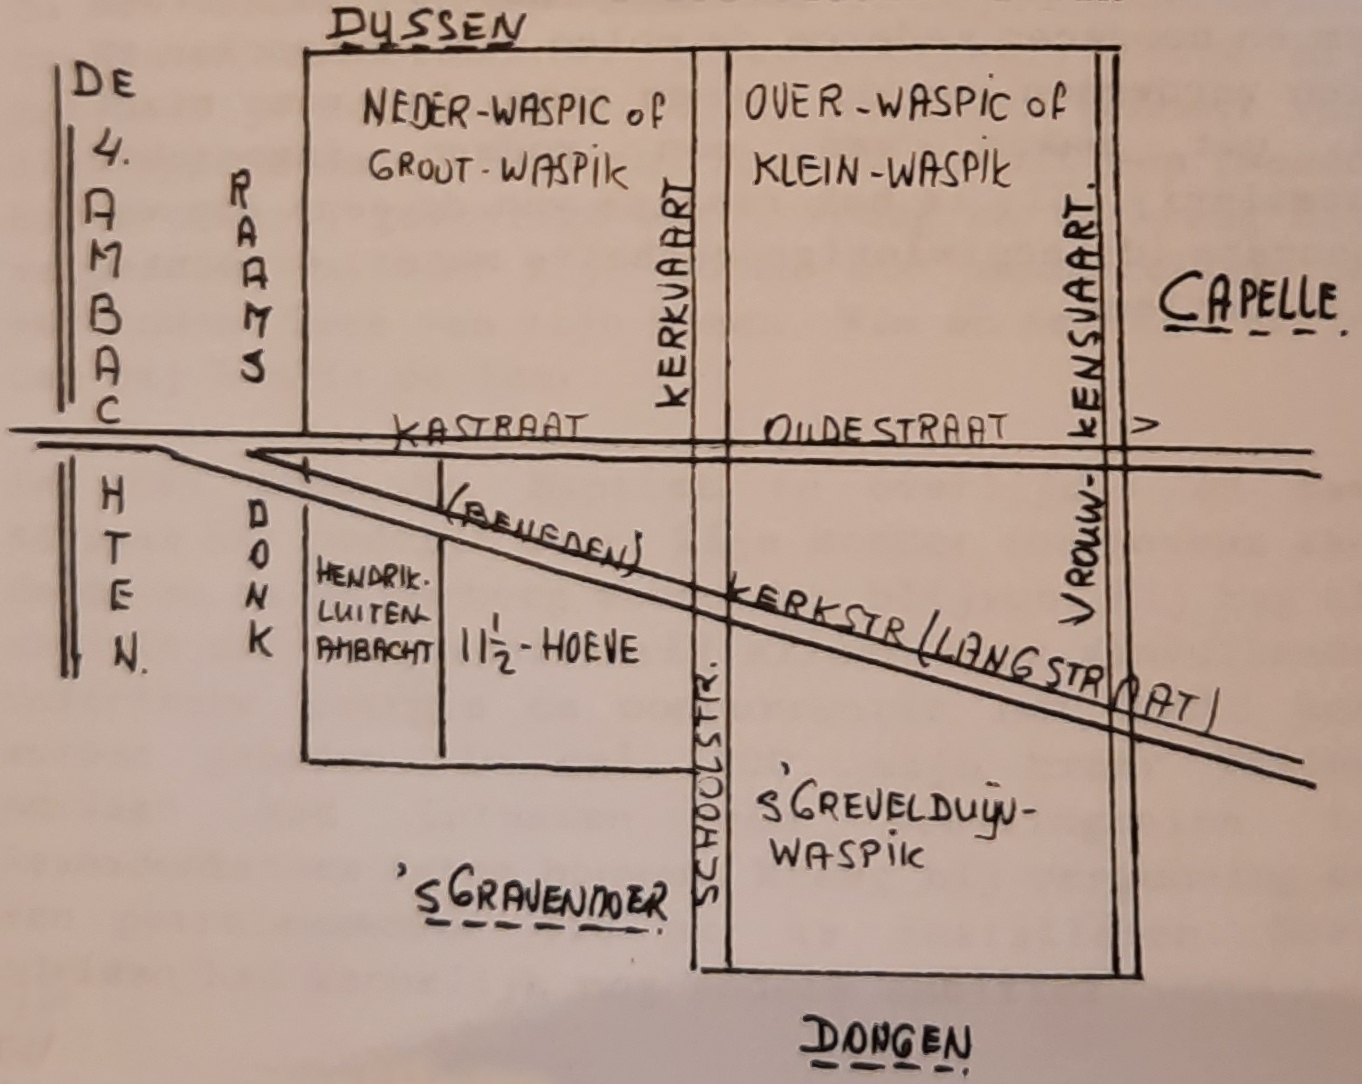 DUSSEN
DE 4. AMBACHTEN.
RAAMSDONK
NEDER-WASPIC of
GROOT-WASPIK
OVER-WASPIC of
KLEIN-WASPIK
KERKVAART
VROUW-KENSVAART.
CAPELLE.
KASTRAAT
OUDESTRAAT >
(BENEDEN) KERKSTR (LANGSTRAAT)
HENDRIK-
LUITEN
AMBACHT
11½-HOEVE
SCHOOLSTR.
s'GREVELDUIJN-
WASPIK
'sGRAVENMOER
DONGEN